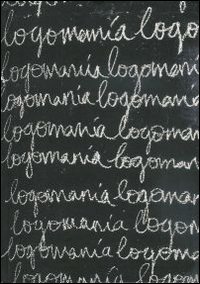 logomanía logo
logomanía logomaní
logomanía logomana
logomanía logoma
logomanía logoman
logomanía logoman
logomanía logon
logomanía logoma
logomanía logom